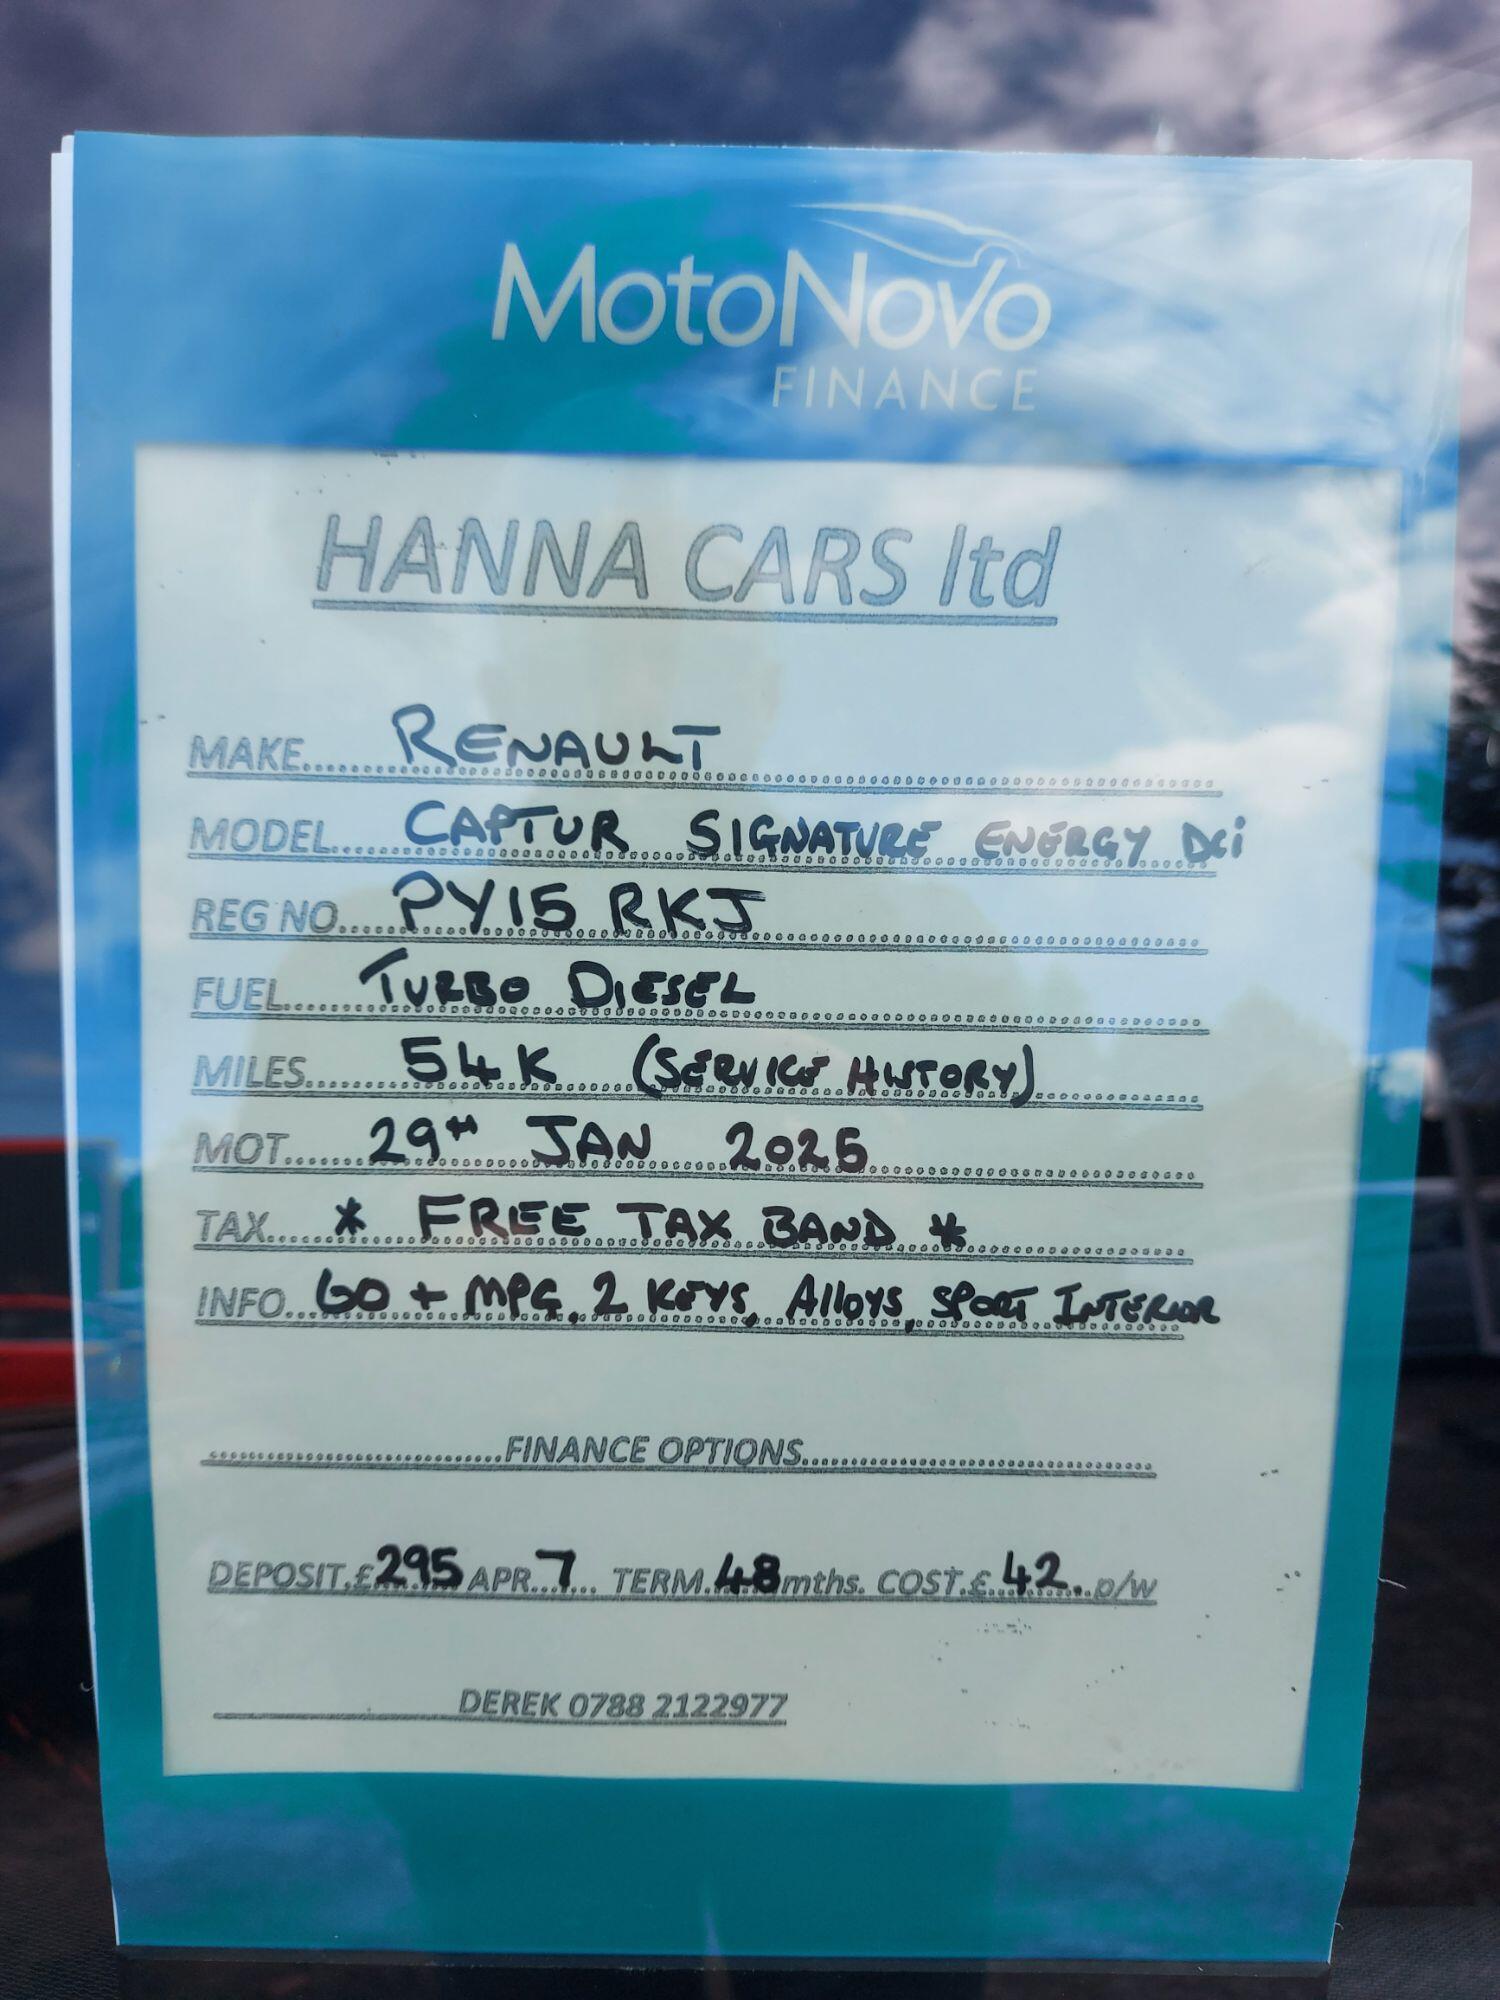 MotoNovo
FINANCE
HANNA CARS ltd
MAKE....RENAULT
MODEL....CAPTUR SIGNATURE ENERGY DCi
REG NO....PY15 RKJ
FUEL....TURBO DIESEL
MILES....54K (SERVICE HISTORY)
MOT....29TH JAN 2025
TAX....* FREE TAX BAND *
INFO..60 + MPG, 2 KEYS, Alloys, SPORT INTERIOR
FINANCE OPTIONS
DEPOSIT.£295 APR...7... TERM.48mths. COST.£.42..p/w
DEREK 0788 2122977